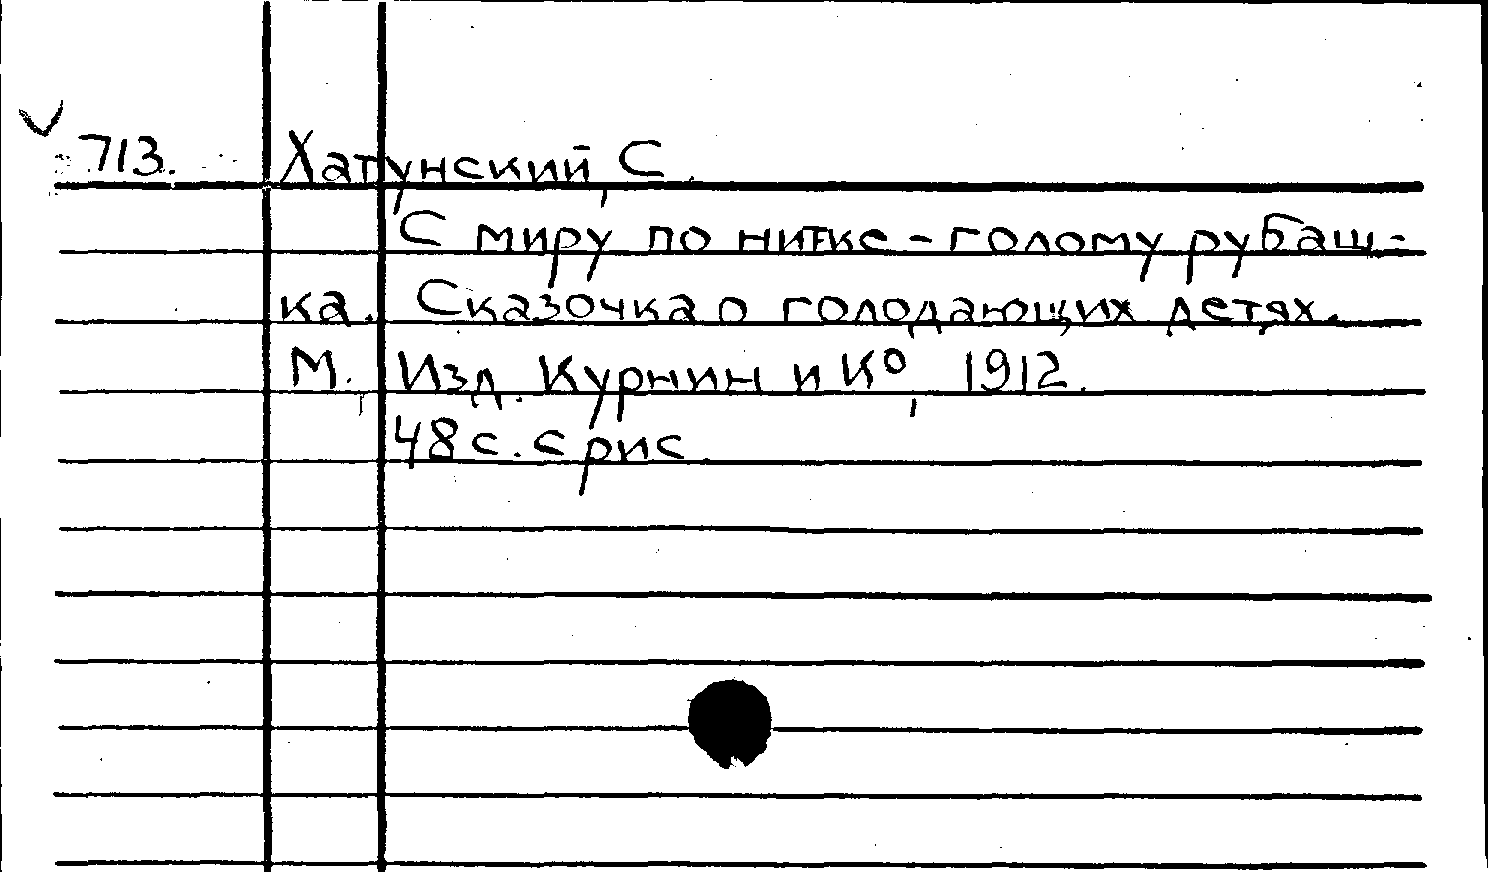 713. Хатунский, С.
С миру по нитке - голому рубаш-
ка. Сказочка о голодающих детях.
М. Изд. Курнин и К°, 1912.
48 с. с рис.